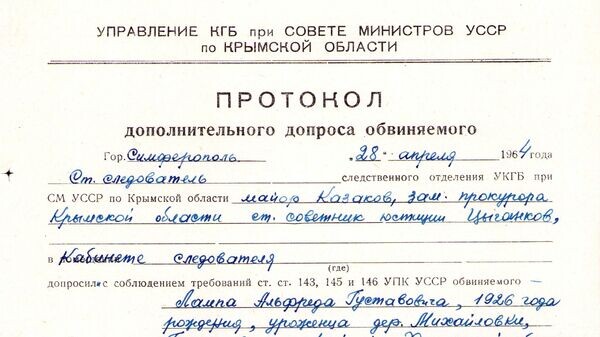 УПРАВЛЕНИЕ КГБ при СОВЕТЕ МИНИСТРОВ УССР
по КРЫМСКОЙ ОБЛАСТИ
ПРОТОКОЛ
дополнительного допроса обвиняемого
Гор. Симферополь „28“ апреля 1964 года
Ст. следователь следственного отделения УКГБ при
СМ УССР по Крымской области майор Казаков, зам. прокурора
Крымской области ст. советник юстиции Цыганков,
в кабинете следователя
(где)
допросил с соблюдением требований ст. ст. 143, 145 и 146 УПК УССР обвиняемого –
Лампа Альфреда Густавовича, 1926 года
рождения, уроженца дер. Михайловки,